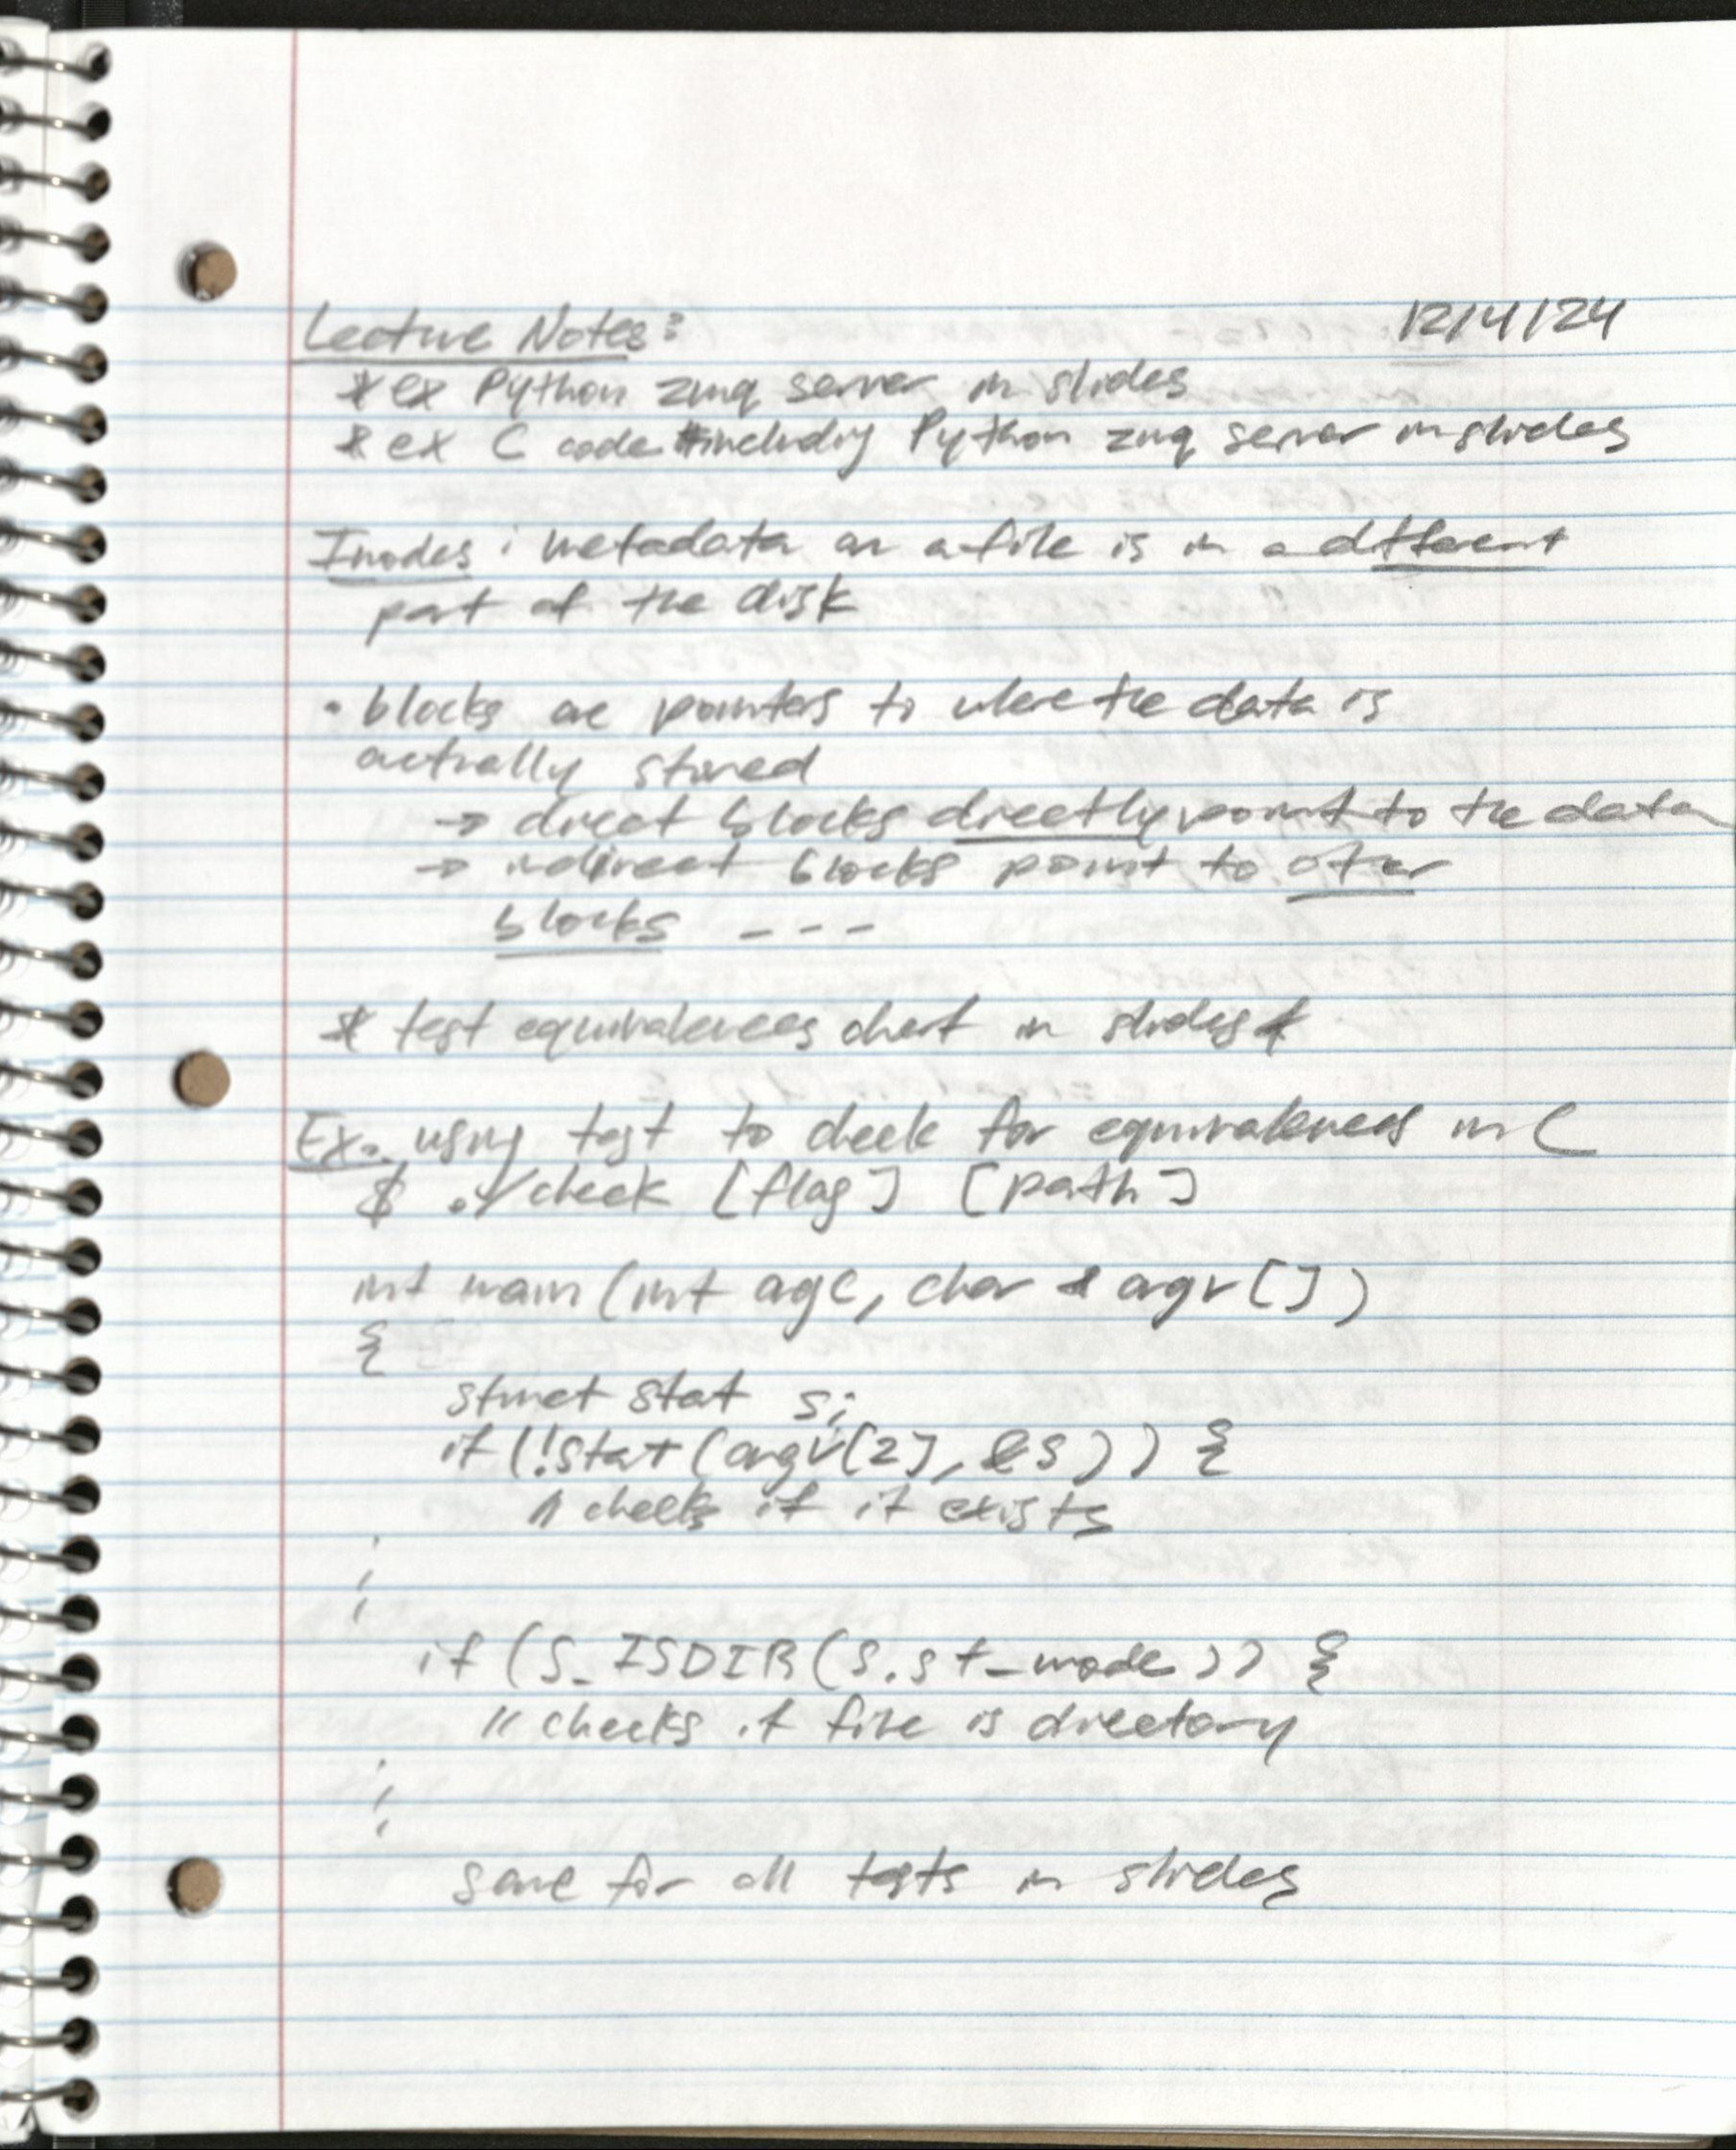 Lecture Notes: 12/4/24
* ex Python zmq server in slides
* ex C code #includiy Python zmq server in slides
Inodes: metadata on a file is in a different
part of the disk
• blocks are pointers to where the data is
actually stored
→ direct blocks directly point to the data
→ indirect blocks point to other
blocks ---
* test equivalences chart in slides *
Ex. using test to check for equivalences in C
$ ./check [flag] [path]
int main (int agc, char * argv [])
{
struct stat s;
if (!stat (argv[2], &s)) {
// checks if it exists
⋮
if (S_ISDIR (s.st_mode)) {
// checks if file is directory
⋮
same for all tests in slides